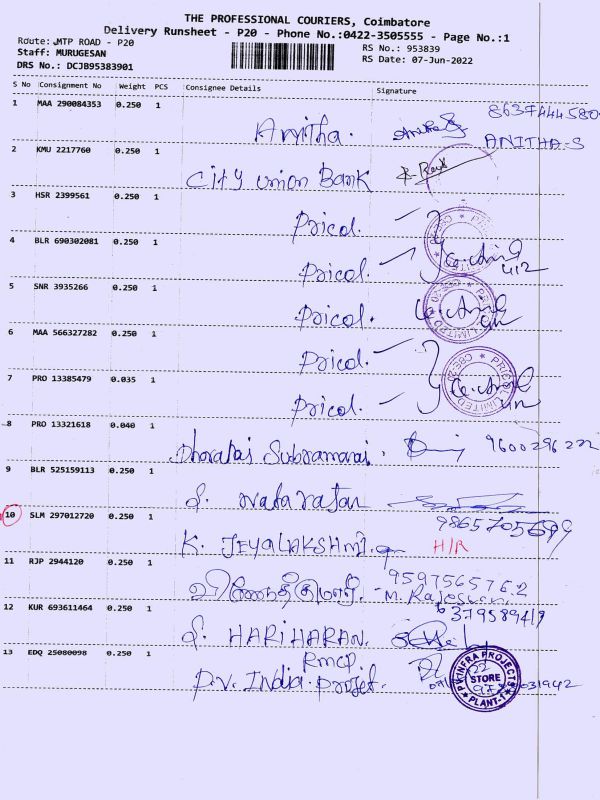 THE PROFESSIONAL COURIERS, Coimbatore
Delivery Runsheet - P20 - Phone No.:0422-3505555 - Page No.:1
Route: MTP ROAD - P20
RS No.: 953839
Staff: MURUGESAN
RS Date: 07-Jun-2022
DRS No.: DCJB95383901
S No Consignment No Weight PCS Consignee Details Signature
1 MAA 290084353 0.250 1
Anitha. 8637444580
ANITHA-S
2 KMU 2217760 0.250 1
City Union Bank
3 HSR 2399561 0.250 1
Pricol.
4 BLR 690302081 0.250 1
Pricol.
5 SNR 3935266 0.250 1
Pricol.
6 MAA 566327282 0.250 1
Pricol.
7 PRO 13385479 0.035 1
Pricol.
8 PRO 13321618 0.040 1
Subramanai. 9600296222
9 BLR 525159113 0.250 1
S. Natarajan
10 SLM 297012720 0.250 1
9865705699
K. JEYALAKSHMI. H/R
11 RJP 2944120 0.250 1
9597565762
M. Rajeswari
12 KUR 693611464 0.250 1
S. HARIHARAN.
13 EDQ 25080098 0.250 1
RMCP.
P.V. India. Projet.
STORE
PLANT-1